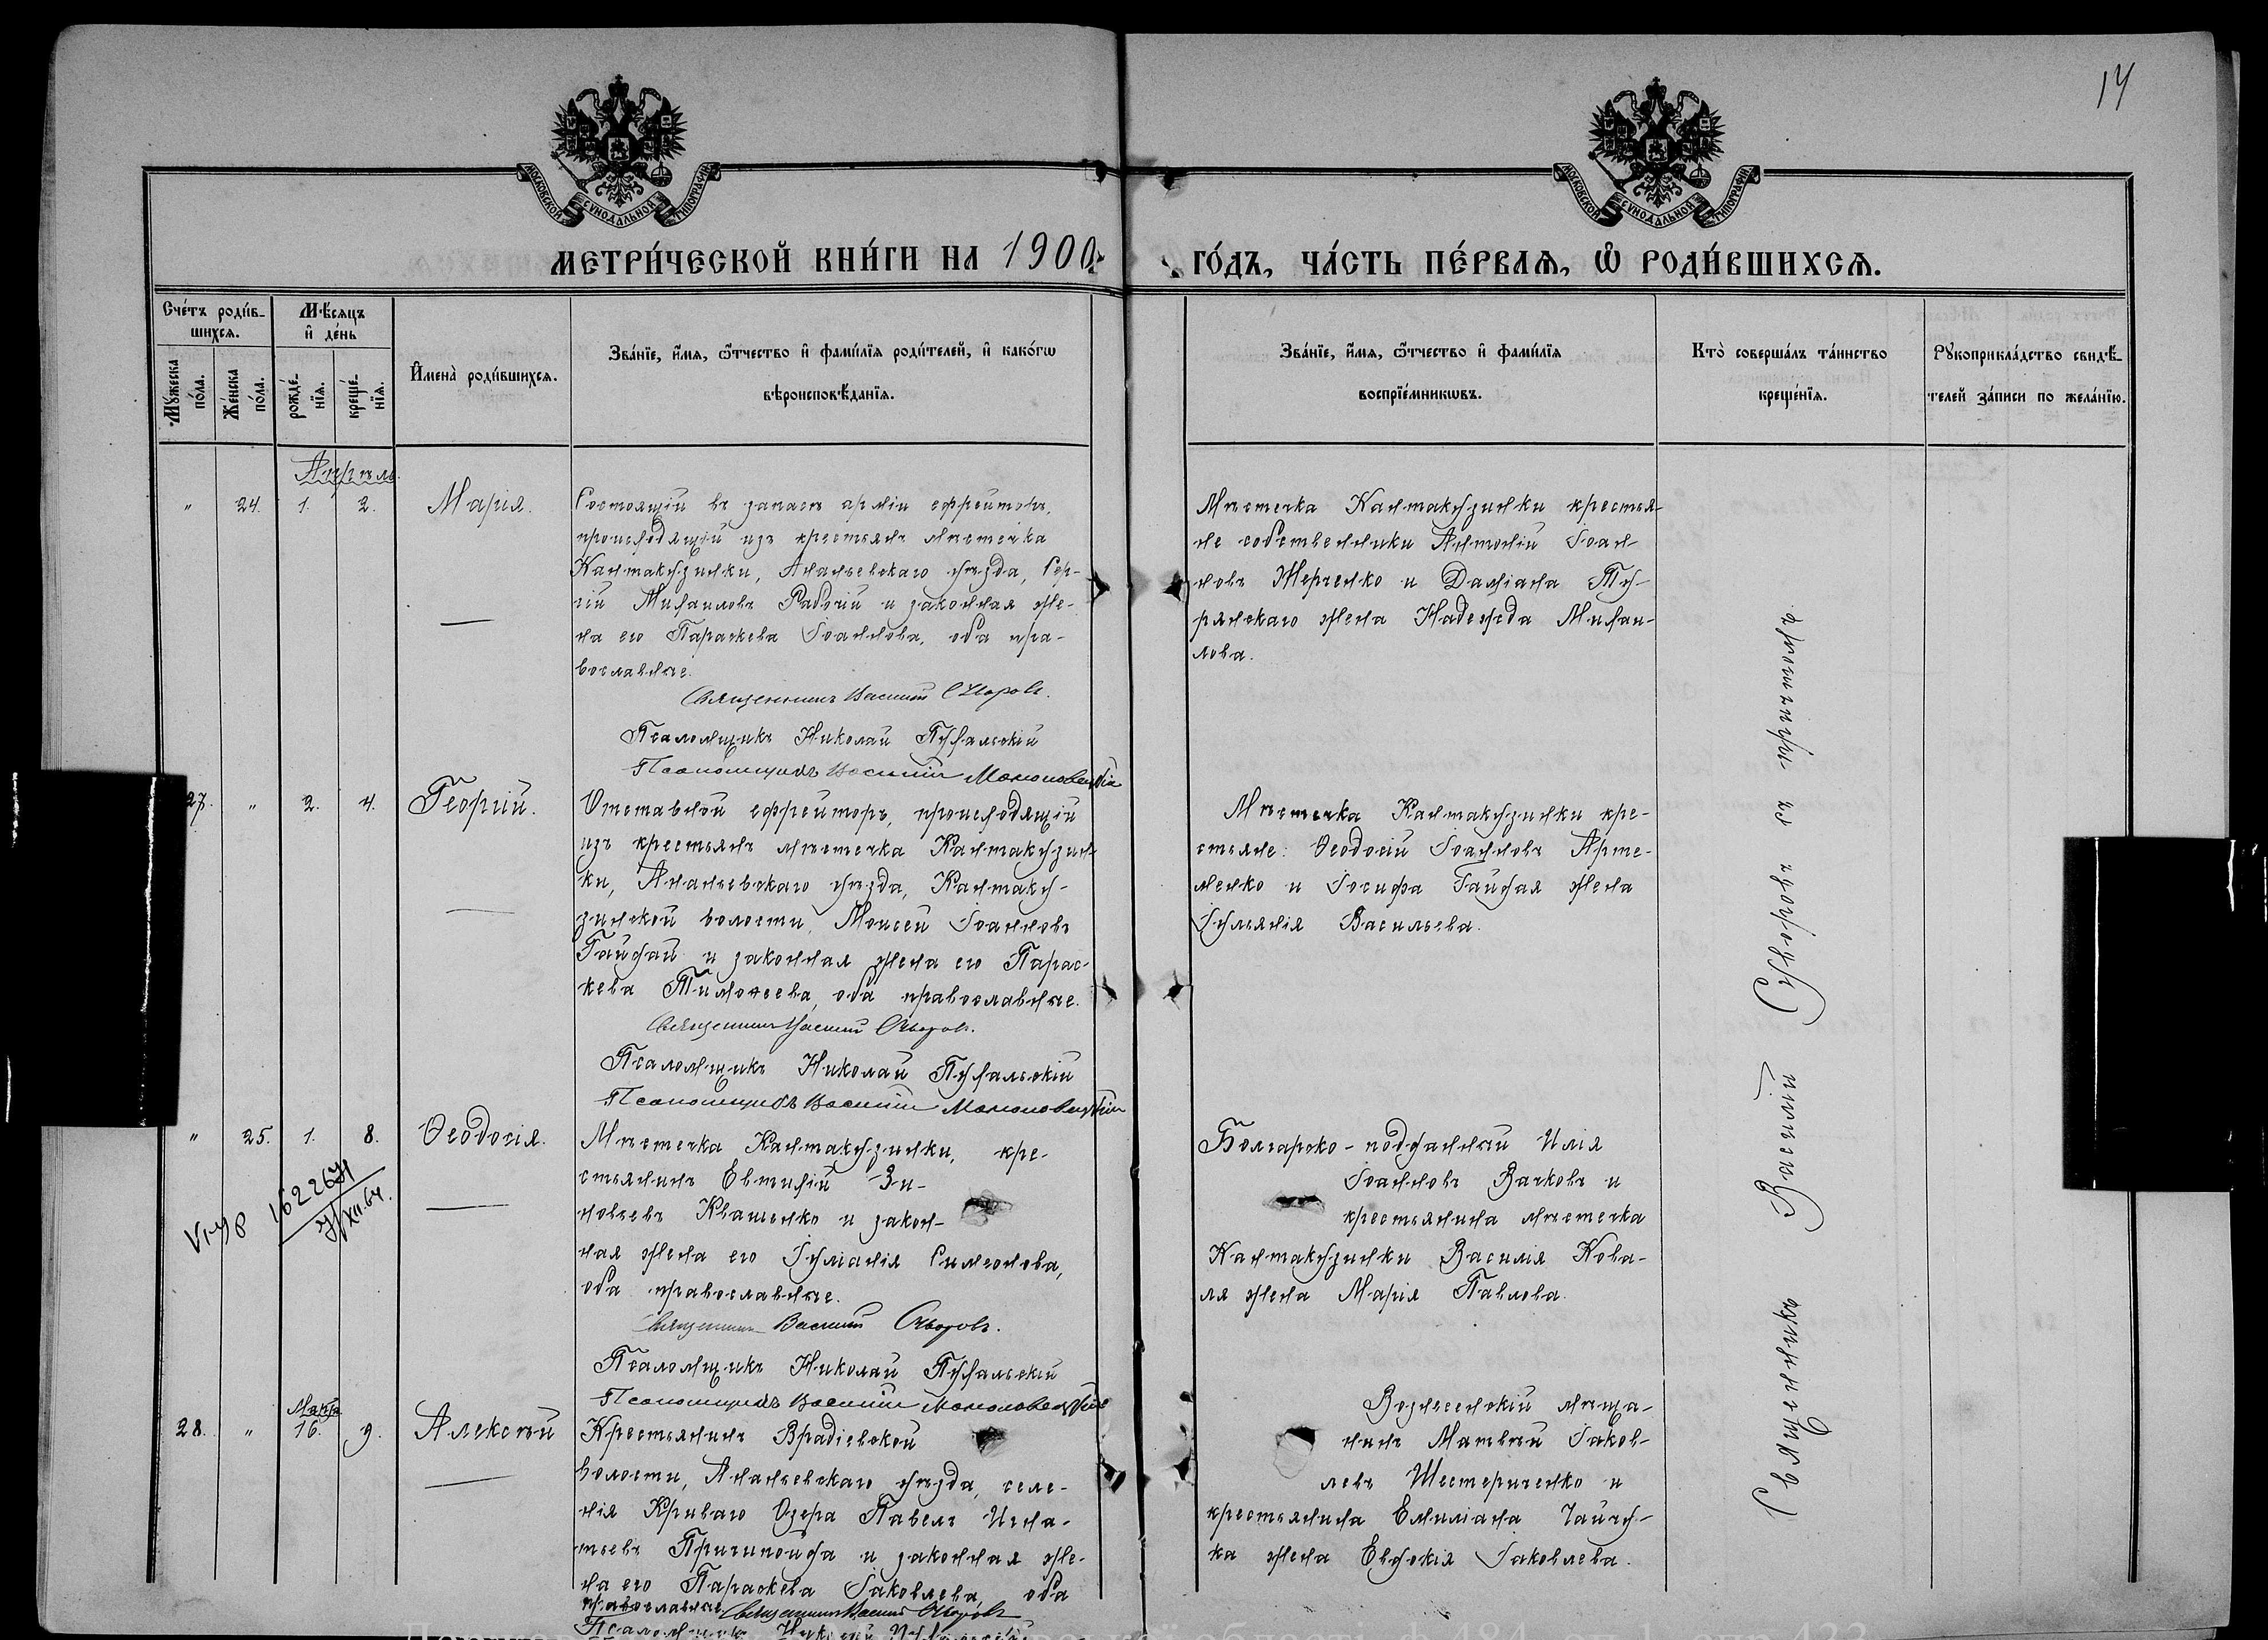 14
МОСКОВСКОЙ СУНОДАЛЬНОЙ ТИПОГРАФІИ
МОСКОВСКОЙ СУНОДАЛЬНОЙ ТИПОГРАФІИ
МЕТРИ́ЧЕСКОЙ КНИ́ГИ НА 1900
ГО́ДЪ, ЧА́СТЬ ПЕ́РВАѦ, Ѽ РОДИ́ВШИХСѦ.
Сче́тъ роди́в-
шихсѧ.
Мѣ́сяцъ
и҆ де́нь
Мꙋ́жеска
по́ла.
Же́нска
по́ла.
рожде́-
нїѧ.
креще́-
нїѧ.
И҆мена̀ роди́вшихсѧ.
Зва́нїе, и҆́мѧ, ѻ҆́тчество и҆ фами́лїѧ роди́телей, и҆ како́гѡ
вѣроисповѣ́данїѧ.
Зва́нїе, и҆́мѧ, ѻ҆́тчество и҆ фами́лїѧ
воспрїе́мникѡвъ.
Кто̀ соверша́лъ та́инство
креще́нїѧ.
Рꙋкоприкла́дство свидѣ́-
телей за́писи по жела́нїю.
Апрѣль
" 24. 1. 2. Марія.
Состоящій въ запасѣ арміи ефрейторъ,
происходящій изъ крестьянъ мѣстечка
Кантакузинки, Ананьевскаго уѣзда, Сер-
гій Михаиловъ Рабочій и законная же-
на его Параскева Іоаннова, оба пра-
вославные.
Священникъ Василій Суворовъ.
Псаломщикъ Николай Пухальскій
Псаломщикъ Василій
Мѣстечка Кантакузинки крестья-
не собственники Антоній Іоан-
новъ Жерченко и Даміана Ту-
рянскаго жена Надежда Михаи-
лова.
27. " 2. 4. Георгій.
Отставной ефрейторъ, происходящій
изъ крестьянъ мѣстечка Кантакузин-
ки, Ананьевскаго уѣзда, Кантаку-
зинской волости, Моисей Іоанновъ
Гайдай и законная жена его Парас-
кева Тимоѳеева, оба православные.
Священникъ Василій Суворовъ.
Псаломщикъ Николай Пухальскій
Псаломщикъ Василій
Мѣстечка Кантакузинки кре-
стьяне: Ѳеодосій Іоанновъ Арте-
менко и Іосифа Гайдая жена
Іульянія Васильева.
" 25. 1. 8. Ѳеодосія.
Мѣстечка Кантакузинки, кре-
стьянинъ Евтихій Зи-
новьевъ Квашенко и закон-
ная жена его Іуліанія Симеонова,
оба православные.
Священникъ Василій Суворовъ.
Псаломщикъ Николай Пухальскій
Псаломщикъ Василій
Болгарско-подданный Илія
Іоанновъ Вачковъ и
крестьянина мѣстечка
Кантакузинки Василія Кова-
ля жена Марія Павлова.
XII.64.
28. " Марта 16. 9. Алексѣй
Крестьянинъ Врадіевской
волости, Ананьевскаго уѣзда, селе-
нія Криваго Озера Павелъ Игна-
тьевъ и законная же-
на его Параскева Іаковлева, оба
православные. Священникъ Василій Суворовъ
Псаломщикъ Николай Пухальскій
Вознесенскій мѣща-
нинъ Матвѣй Іаков-
левъ Шестериченко и
крестьянина Емиліана Чайчу-
ка жена Евдокія Іаковлева.
Священникъ Василій Суворовъ съ причтомъ